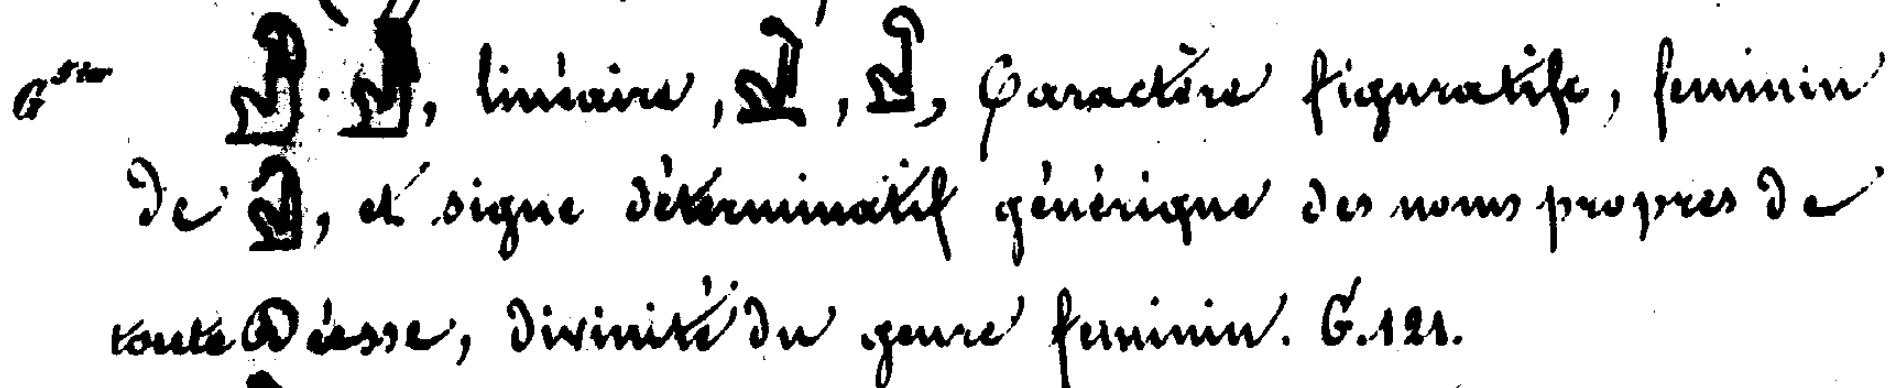 linéaire, , , Caractère figuratife, feminin
de , et signe déterminatif générique des noms propres de
toute Déesse, divinité du genre feminin. G. 121.